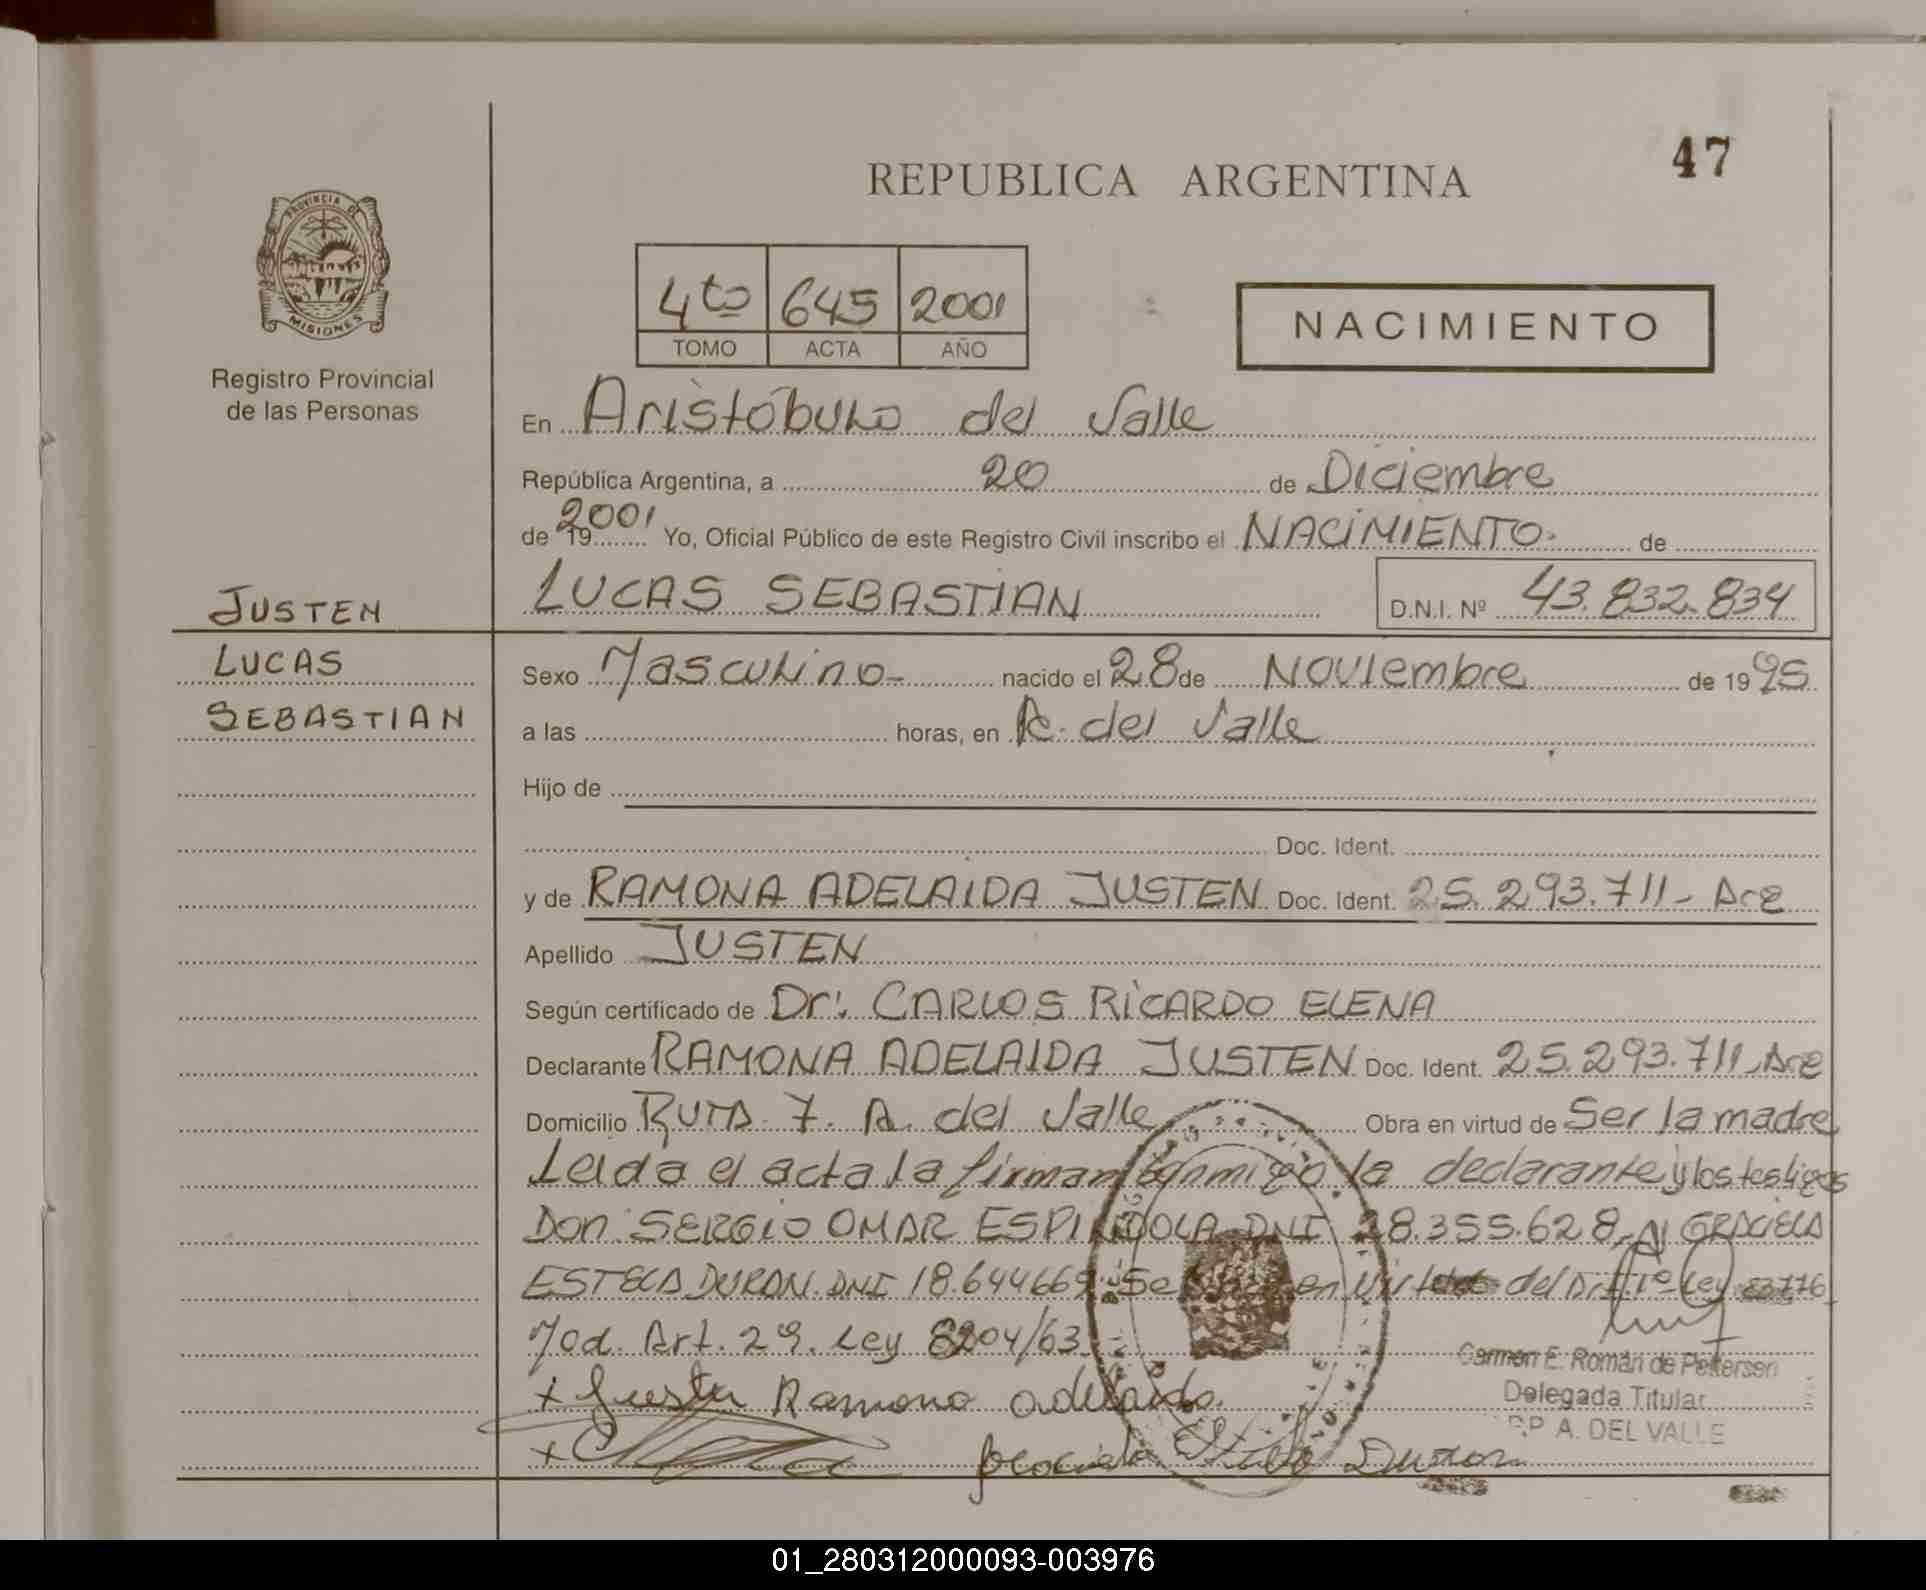 47
REPUBLICA ARGENTINA
PROVINCIA DE
MISIONES
Registro Provincial
de las Personas
4to 645 2001
TOMO ACTA AÑO
NACIMIENTO
En Aristóbulo del Valle
República Argentina, a 20 de Diciembre
de 19 2001 Yo, Oficial Público de este Registro Civil inscribo el NACIMIENTO. de
JUSTEN
LUCAS SEBASTIAN D.N.I. Nº 43.832.834
LUCAS
Sexo Masculino- nacido el 28 de Noviembre de 1995
SEBASTIAN
a las horas, en A. del Valle
Hijo de
Doc. Ident.
y de RAMONA ADELAIDA JUSTEN Doc. Ident. 25.293.711- Arg
Apellido JUSTEN
Según certificado de Dr: CARLOS RICARDO ELENA
Declarante RAMONA ADELAIDA JUSTEN Doc. Ident. 25.293.711-Arg
Domicilio RUTA 7. A. del Valle Obra en virtud de Ser la madre
Leida el acta la firman conmigo la declarante y los testigos
Don SERGIO OMAR ESPINDOLA DNI 28.355.628 GRACIELA
ESTELA DURAN. DNI 18.644669 Se en virtud del Ley
Mod. Art. 29. Ley 8204/63
+ Justen Ramona adelaida
Carmen E. Román de Pettersen
Delegada Titular
A. DEL VALLE
+ Graciela Estela Duran
01_280312000093-003976